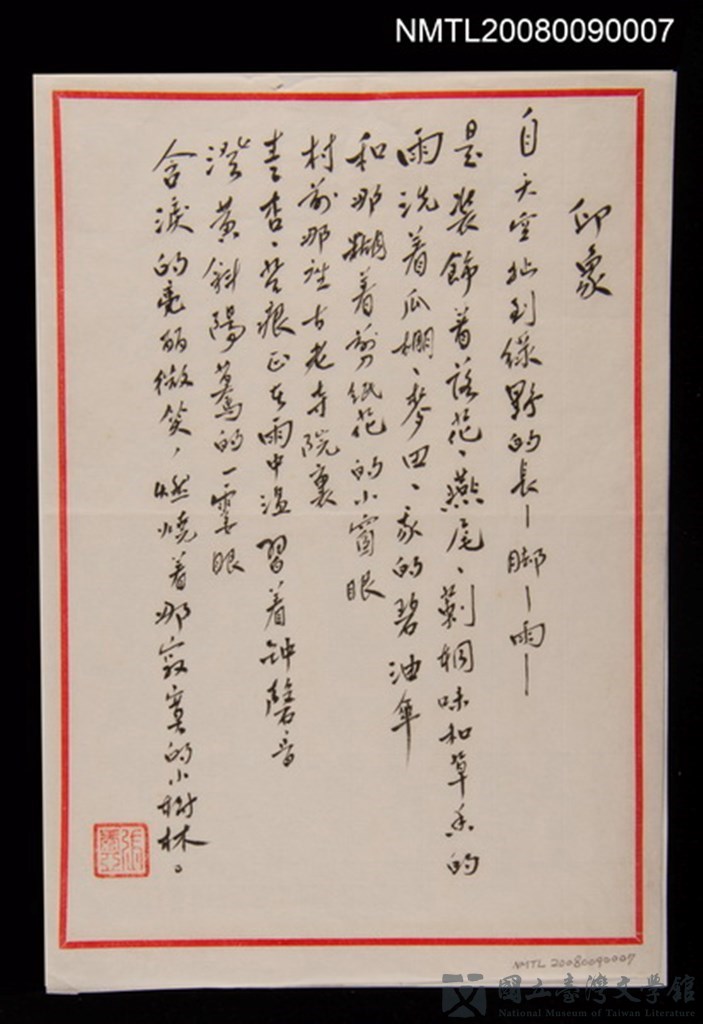 NMTL20080090007
印象
自天空拉到綠野的長—脚—雨—
是裝飾着落花、燕尾、莿桐味和草香的
雨洗着瓜棚、麥田、我的碧油傘
和那糊着剪紙花的小窗眼
村前那座古老寺院裏
青杏、苔痕正在雨中溫習着钟磬音
澄黃斜陽驀的一霎眼
含淚的亮的微笑，燃燒着那寂寞的小樹林。
NMTL 20080090007
國立臺灣文學館
National Museum of Taiwan Literature